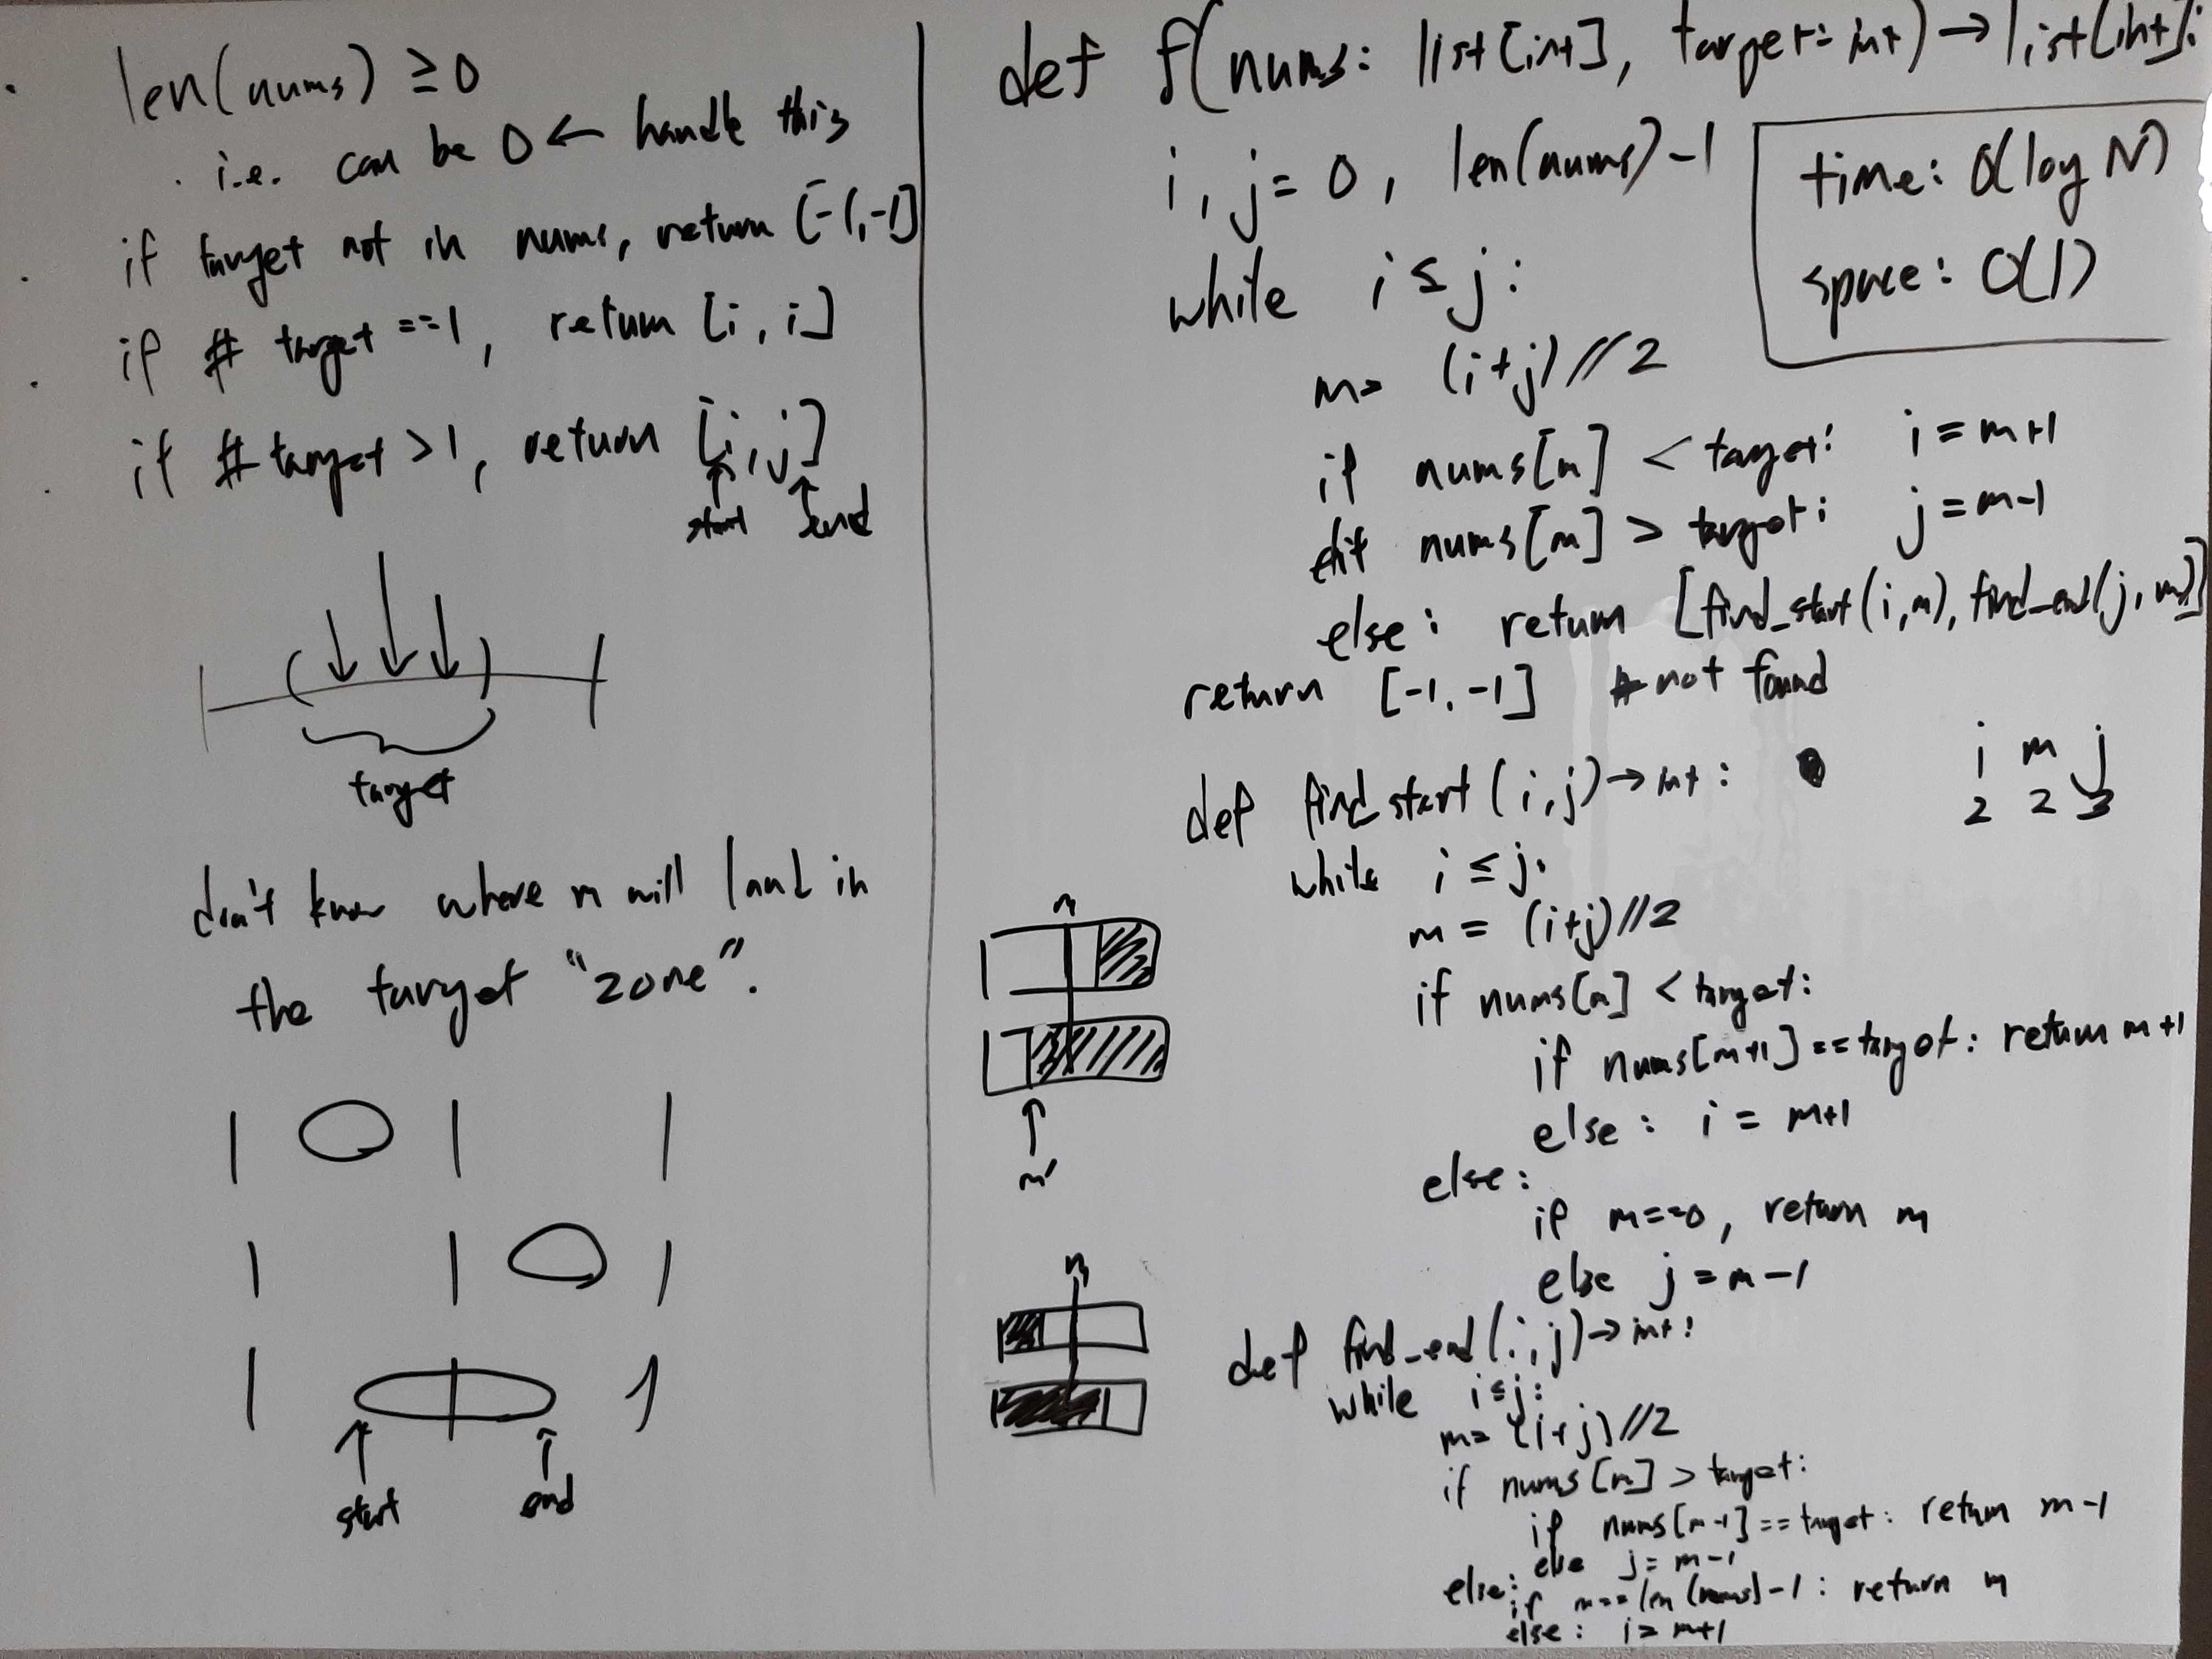 len(nums) ≥ 0
i.e. can be 0 ← handle this
if target not in nums, return [-1,-1]
if # target ==1, return [i, i]
if # target >1, return [i, j]
start end
target
don't know where m will land in
the target "zone".
start end
def f(nums: list[int], target: int) → list[int]:
i, j = 0, len(nums)-1
time: O(log N)
space: O(1)
while i ≤ j:
m = (i+j)//2
if nums[m] < target: i = m+1
elif nums[m] > target: j = m-1
else: return [find_start(i,m), find_end(j,m)]
return [-1, -1] # not found
i m j
2 2 3
def find_start(i,j) → int:
while i ≤ j:
m = (i+j)//2
if nums[m] < target:
if nums[m+1] == target: return m+1
else: i = m+1
else:
if m==0, return m
else j = m-1
m
m'
m
def find_end(i,j) → int:
while i ≤ j:
m = (i+j)//2
if nums[m] > target:
if nums[m-1] == target: return m-1
else j = m-1
else:
if m == len(nums)-1: return m
else: i = m+1